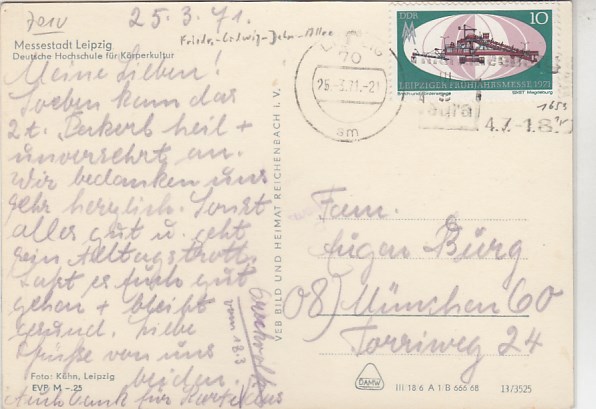 25.3.71.
Messestadt Leipzig
Deutsche Hochschule für Körperkultur
Friedr.-Ludwig-Jahn-Allee
Meine Lieben!
Soeben kam das
2t. Packerl heil +
unversehrt an.
Wir bedanken uns
sehr herzlich. Sonst
alles gut u. geht
sein Alltagstrott.
Laßt es Euch gut
gehen + bleibt
gesund. Liebe
Grüße von uns
beiden.
Auch Dank für Karte
vom 18.3
Foto: Kühn, Leipzig
EVP M -.25
VEB BILD UND HEIMAT REICHENBACH I. V.
DDR
10
LEIPZIGER FRÜHJAHRSMESSE 1971
70
25.-3.71.-21
am
4.7.-1.8.
1653
Fam.
Eugen Burg
(08) München 60
Torriweg 24
DAMW
III 18 6 A 1/B 666 68
13/3525